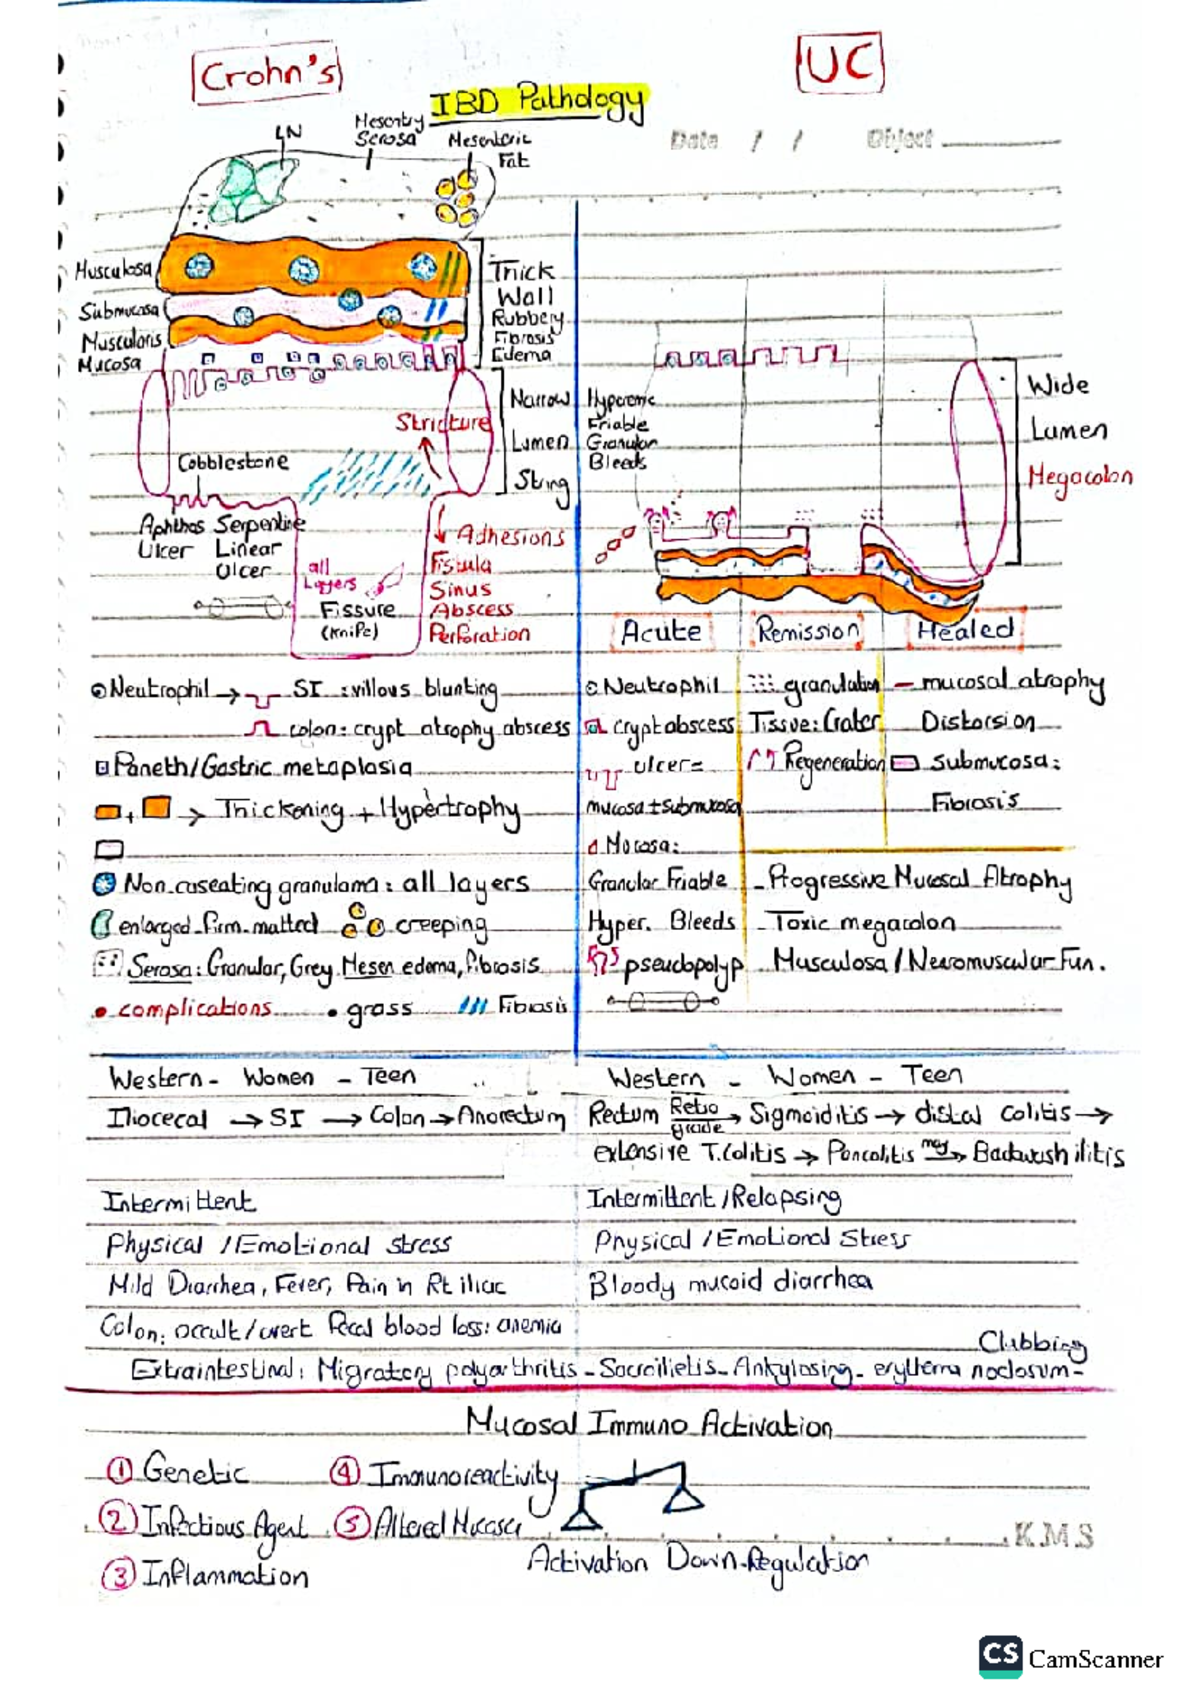 Crohn's
UC
IBD Pathology
Date / / Object
LN
Mesentry
Serosa
Mesenteric
Fat
Musculosa
Submucosa
Muscularis
Mucosa
Thick
Wall
Rubbery
Fibrosis
Edema
Narrow
Lumen
String
Stricture
Cobblestone
Aphthos Serpentine
Ulcer Linear
Ulcer
all
Layers
Fissure
(Knife)
Adhesions
Fistula
Sinus
Abscess
Perforation
Hyperemic
Friable
Granular
Bleeds
Wide
Lumen
Megacolon
Acute
Remission
Healed
Neutrophil → SI : villous blunting
colon: crypt atrophy abscess
Paneth/Gastric metaplasia
+ → Thickening + Hypertrophy
Non-caseating granuloma: all layers
enlarged firm matted creeping
Serosa: Granular, Grey Mesen edema, fibrosis
• complications • gross Fibrosis
Neutrophil
crypt abscess
ulcer=
mucosa ± submucosa
Mucosa:
Granular Friable
Hyper. Bleeds
pseudopolyp
granulation
Tissue: Crater
Regeneration
– mucosal atrophy
Distorsion
Submucosa:
Fibrosis
- Progressive Mucosal Atrophy
- Toxic megacolon
Musculosa / Neuromuscular Fun.
Western - Women - Teen
Iliocecal → SI → Colon → Anorectum
Intermittent
Physical / Emotional stress
Mild Diarrhea, Fever, Pain in Rt iliac
Colon: occult/overt fecal blood loss: anemia
Western - Women - Teen
Rectum Retro grade → Sigmoiditis → distal colitis →
extensive T.Colitis → Pancolitis may → Backwash ilitis
Intermittent / Relapsing
Physical / Emotional Stress
Bloody mucoid diarrhea
Clubbing
Extraintestinal: Migratory polyarthritis - Sacroilietis - Ankylosing - erythema nodosum -
Mucosal Immuno Activation
① Genetic
② Infectious Agent
③ Inflammation
④ Immunoreactivity
⑤ Altered Mucosa
Activation Down-Regulation
KMS
CS CamScanner